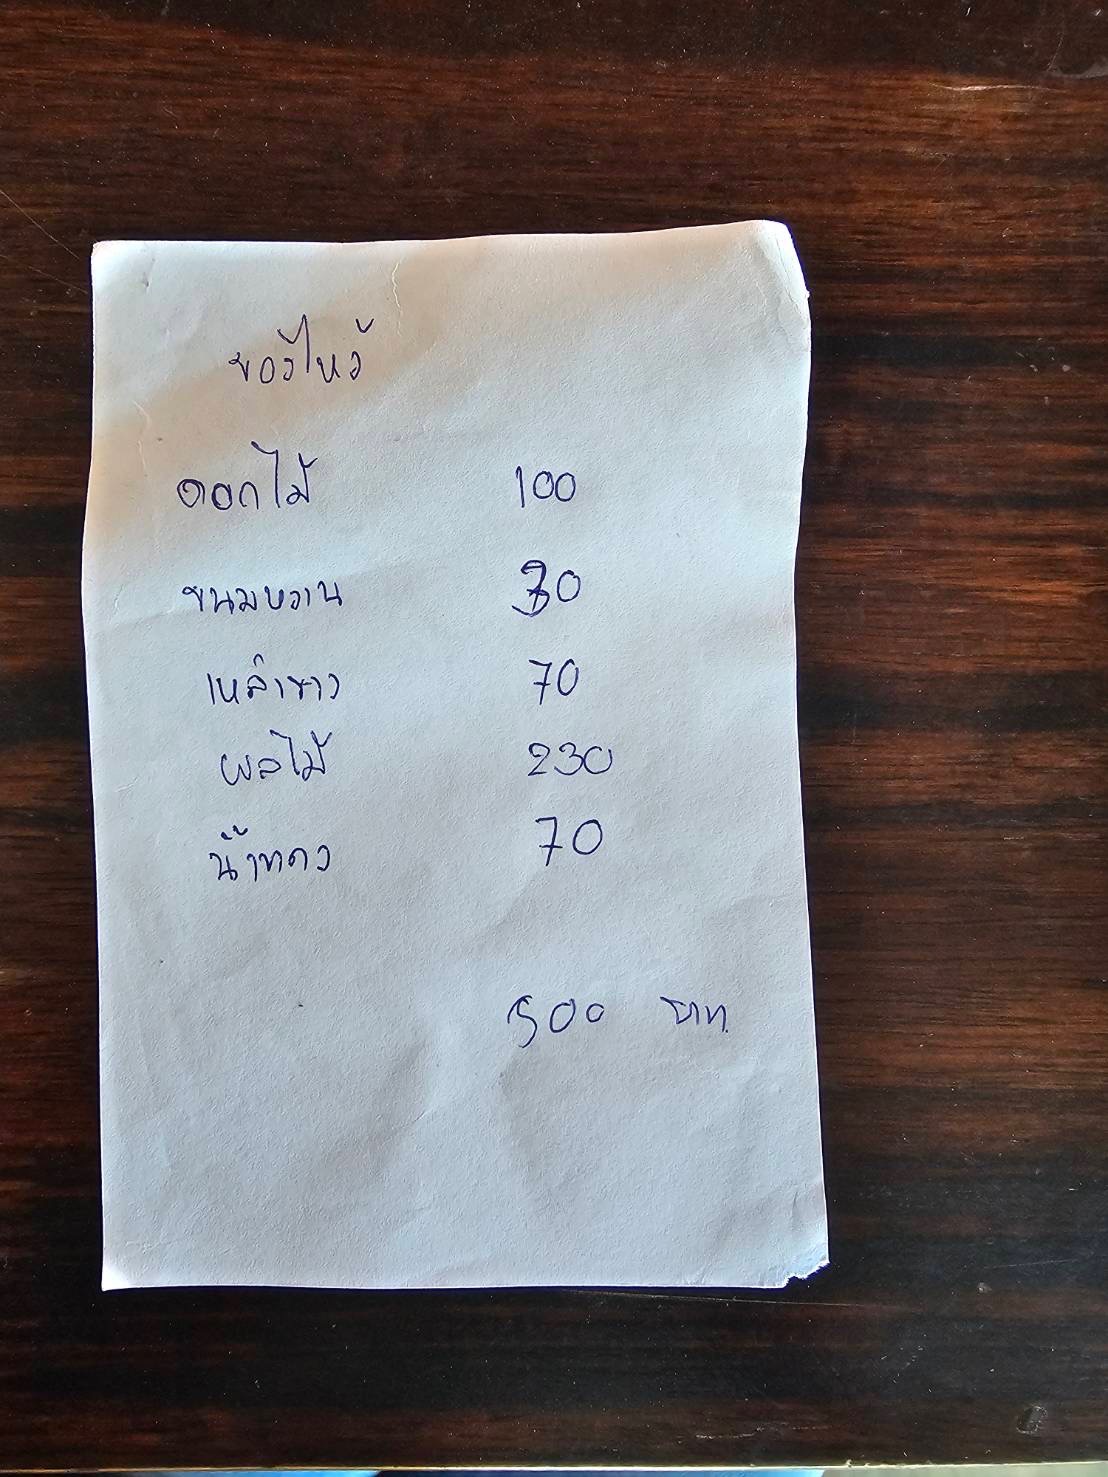 ของไหว้
ดอกไม้ 100
ขนมหวาน 30
เหล้าขาว 70
ผลไม้ 230
น้ำแดง 70
500 บาท